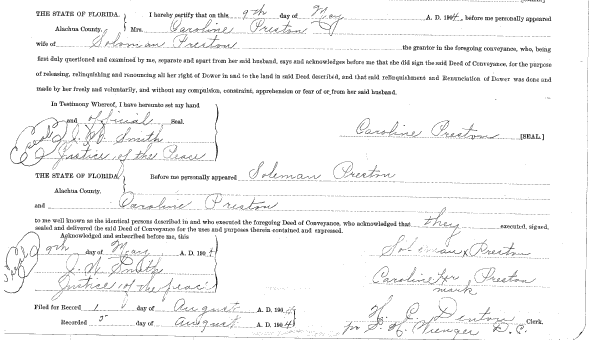 THE STATE OF FLORIDA. I hereby certify that on this 9th day of May A. D. 1904, before me personally appeared
Alachua County. Mrs. Caroline Preston
wife of Soloman Preston the grantor in the foregoing conveyance, who, being
first duly questioned and examined by me, separate and apart from her said husband, says and acknowledges before me that she did sign the said Deed of Conveyance, for the purpose
of releasing, relinquishing and renouncing all her right of Dower in and to the land in said Deed described, and that said relinquishment and Renunciation of Dower was done and
made by her freely and voluntarily, and without any compulsion, constraint, apprehension or fear of or from her said husband.
In Testimony Whereof, I have hereunto set my hand
and official Seal.
Caroline Preston [SEAL.]
J. W. Smith
Justice of the Peace
THE STATE OF FLORIDA Before me personally appeared Soleman Preston
Alachua County.
and Caroline Preston
to me well known as the identical persons described in and who executed the foregoing Deed of Conveyance, who acknowledged that they executed, signed,
sealed and delivered the said Deed of Conveyance for the uses and purposes therein contained and expressed.
Acknowledged and subscribed before me, this
9th day of May A. D. 1904
Soloman x Preston
J. W. Smith
Caroline her Preston
mark
Justice of the peace
Filed for Record 1 day of August A. D. 1904
H. C. Denton Clerk.
Recorded 5 day of August A. D. 1904
D. C.